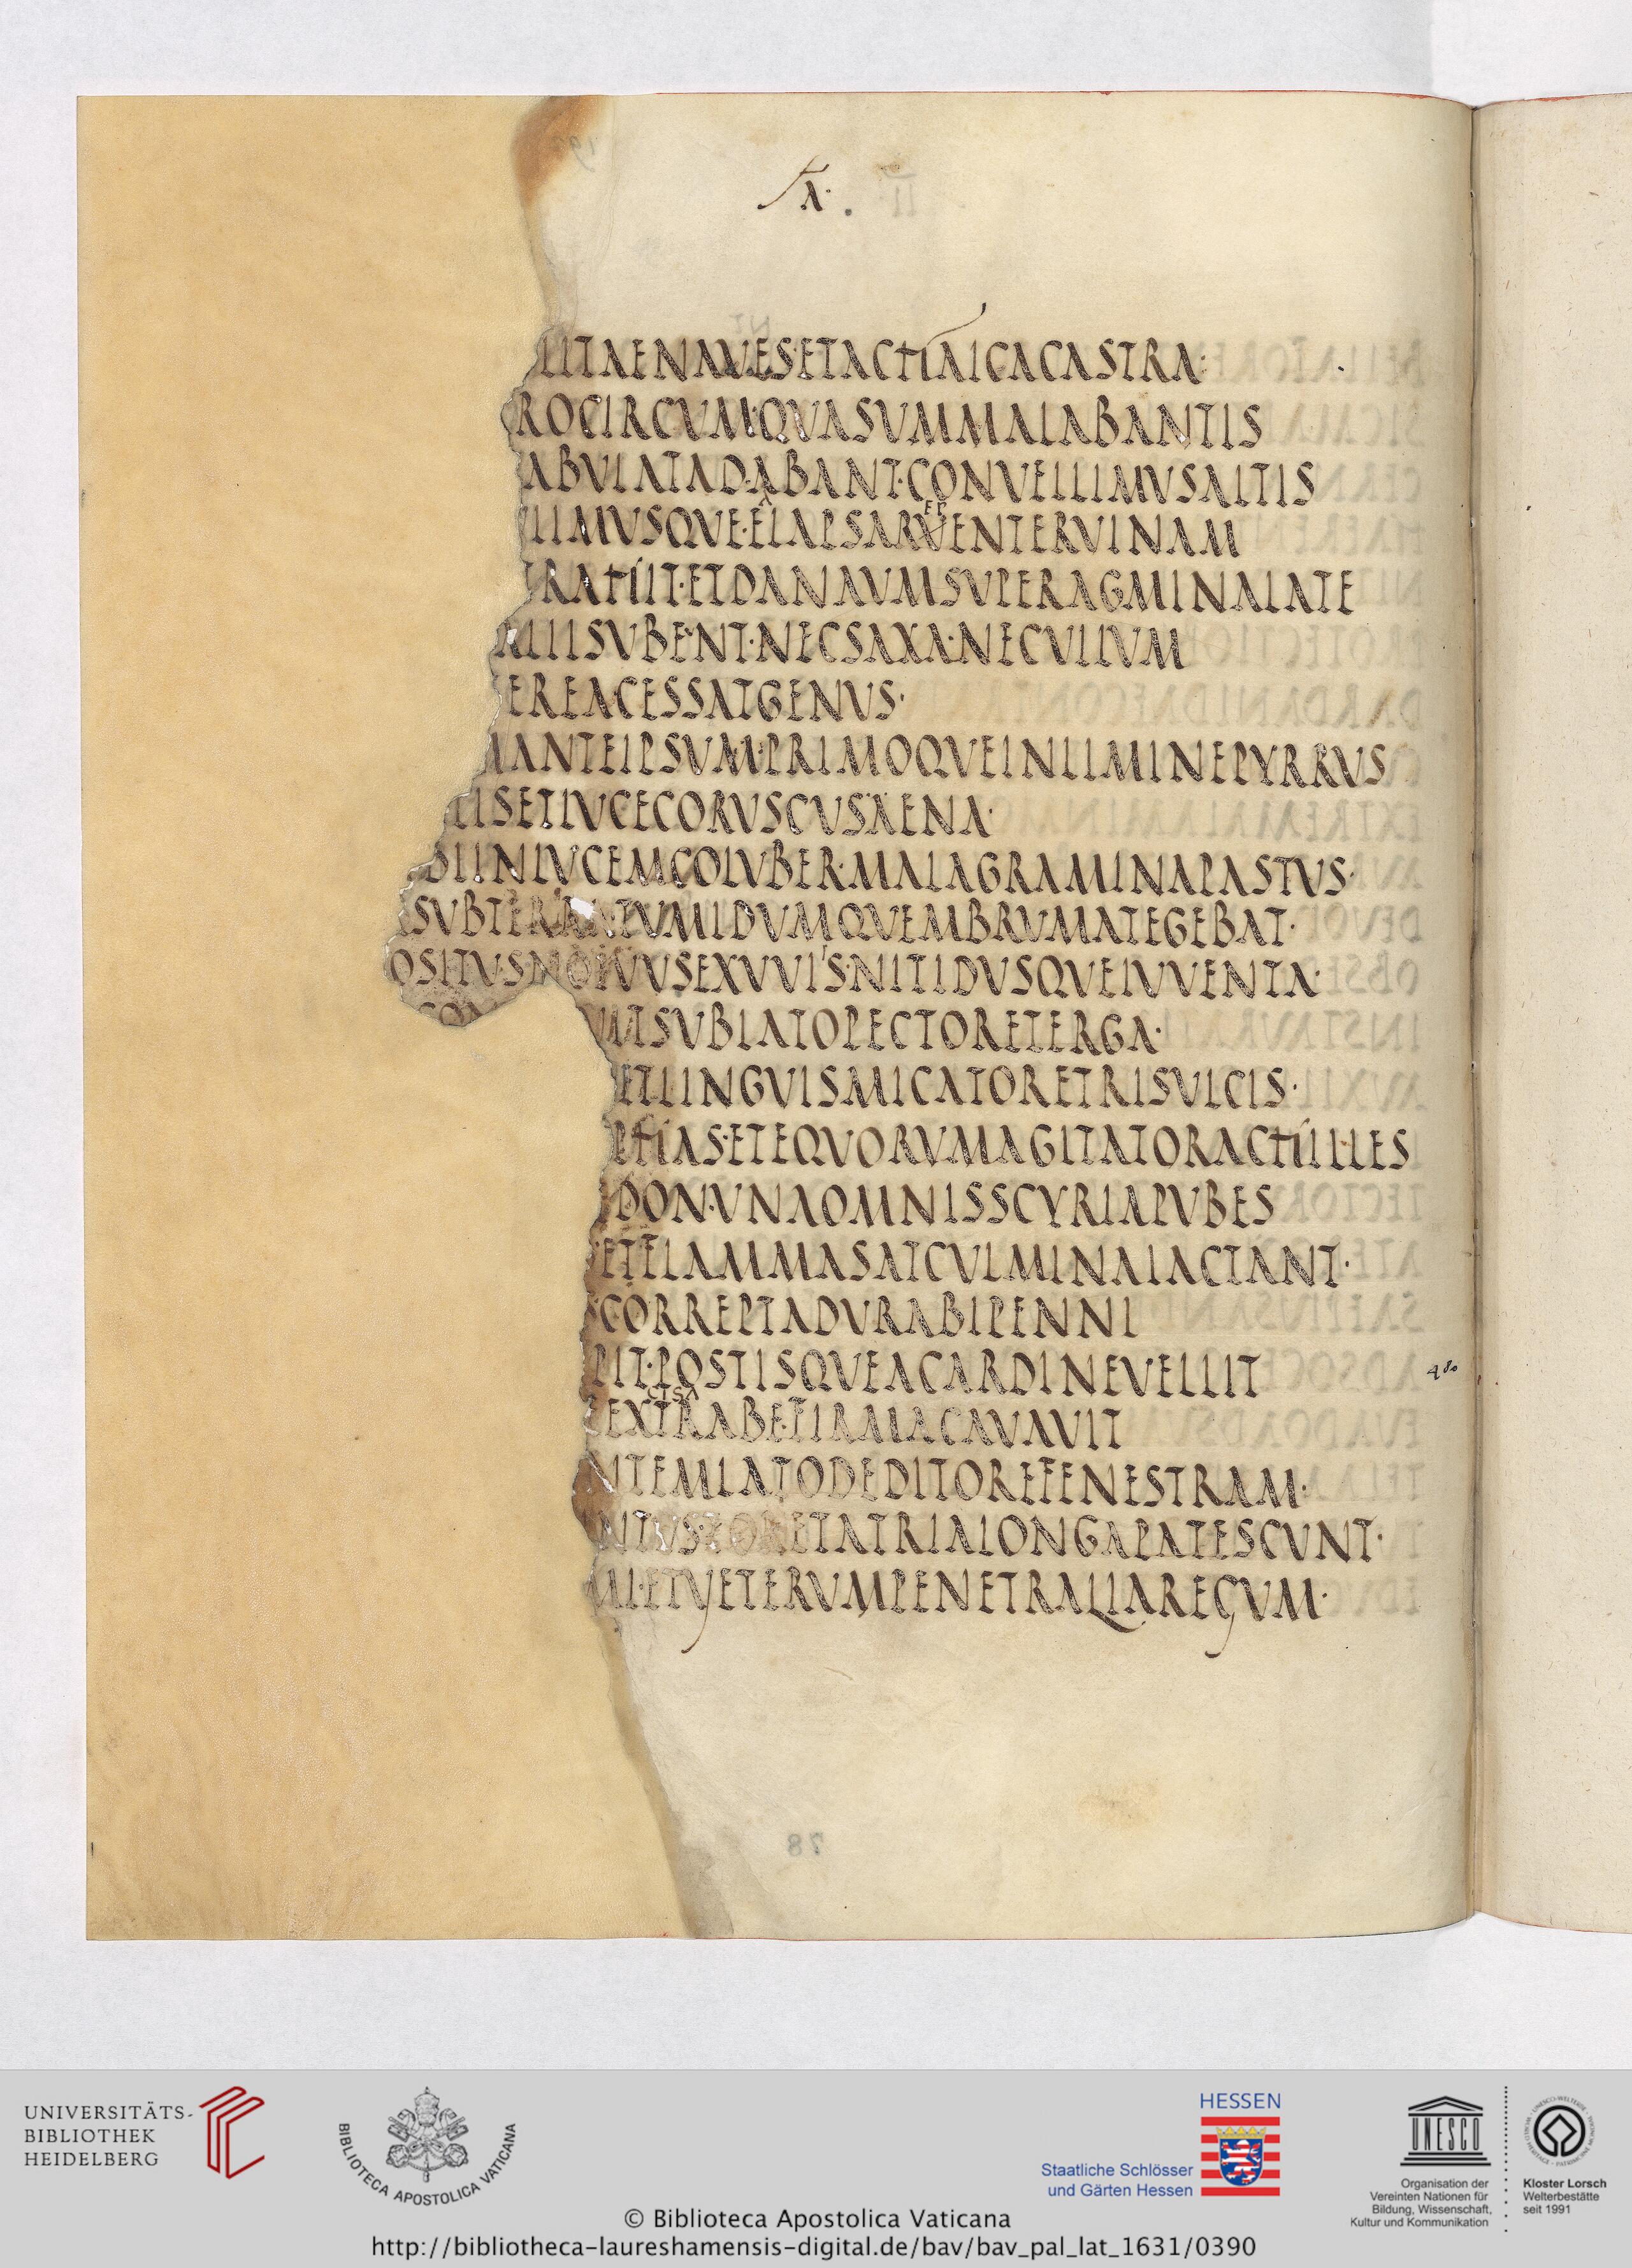 LITAENAVES·ETACHAICACASTRA·
ROCIRCVM·QVASVMMALABANTIS
ABVLATADABANT·CONVELLIMVSALTIS
LIMVSQVE·ELAPSAREPENTERVINAM
TRAHIT·ETDANAVMSVPERAGMINALATE
ALIISVBEVNT·NECSAXA·NECVLLVM
EREACESSATGENVS·
MANTEIPSVM·PRIMOQVEINLIMINEPYRRVS
LISETLVCECORVSCVSAENA·
BIINLVCEMCOLVBER·MALAGRAMINAPASTVS·
SVBTERRATVMIDVMQVEMBRVMATEGEBAT·
OSITVSNOVVSEXVVIIS·NITIDVSQVEIVVENTA·
CON VITSVBLATOPECTORETERGA·
ETLINGVISMICATORETRISVLCIS·
PHAS·ETEQVORVMAGITATORACHILLES
DON·VNAOMNISSCYRIAPVBES
ETFLAMMASATCVLMINAIACTANT·
CORREPTADVRABIPENNI
PIT·POSTISQVEACARDINEVELLIT
480
EXCISATRABE·FIRMACAVAVIT
NTEMLATODEDITOREFENESTRAM·
NTVS·ETATRIALONGAPATESCVNT·
MI·ETVETERVMPENETRALIAREGVM·
UNIVERSITÄTS-
BIBLIOTHEK
HEIDELBERG
BIBLIOTECA APOSTOLICA VATICANA
HESSEN
Staatliche Schlösser
und Gärten Hessen
UNESCO
Organisation der
Vereinten Nationen für
Bildung, Wissenschaft,
Kultur und Kommunikation
Kloster Lorsch
Welterbestätte
seit 1991
© Biblioteca Apostolica Vaticana
http://bibliotheca-laureshamensis-digital.de/bav/bav_pal_lat_1631/0390